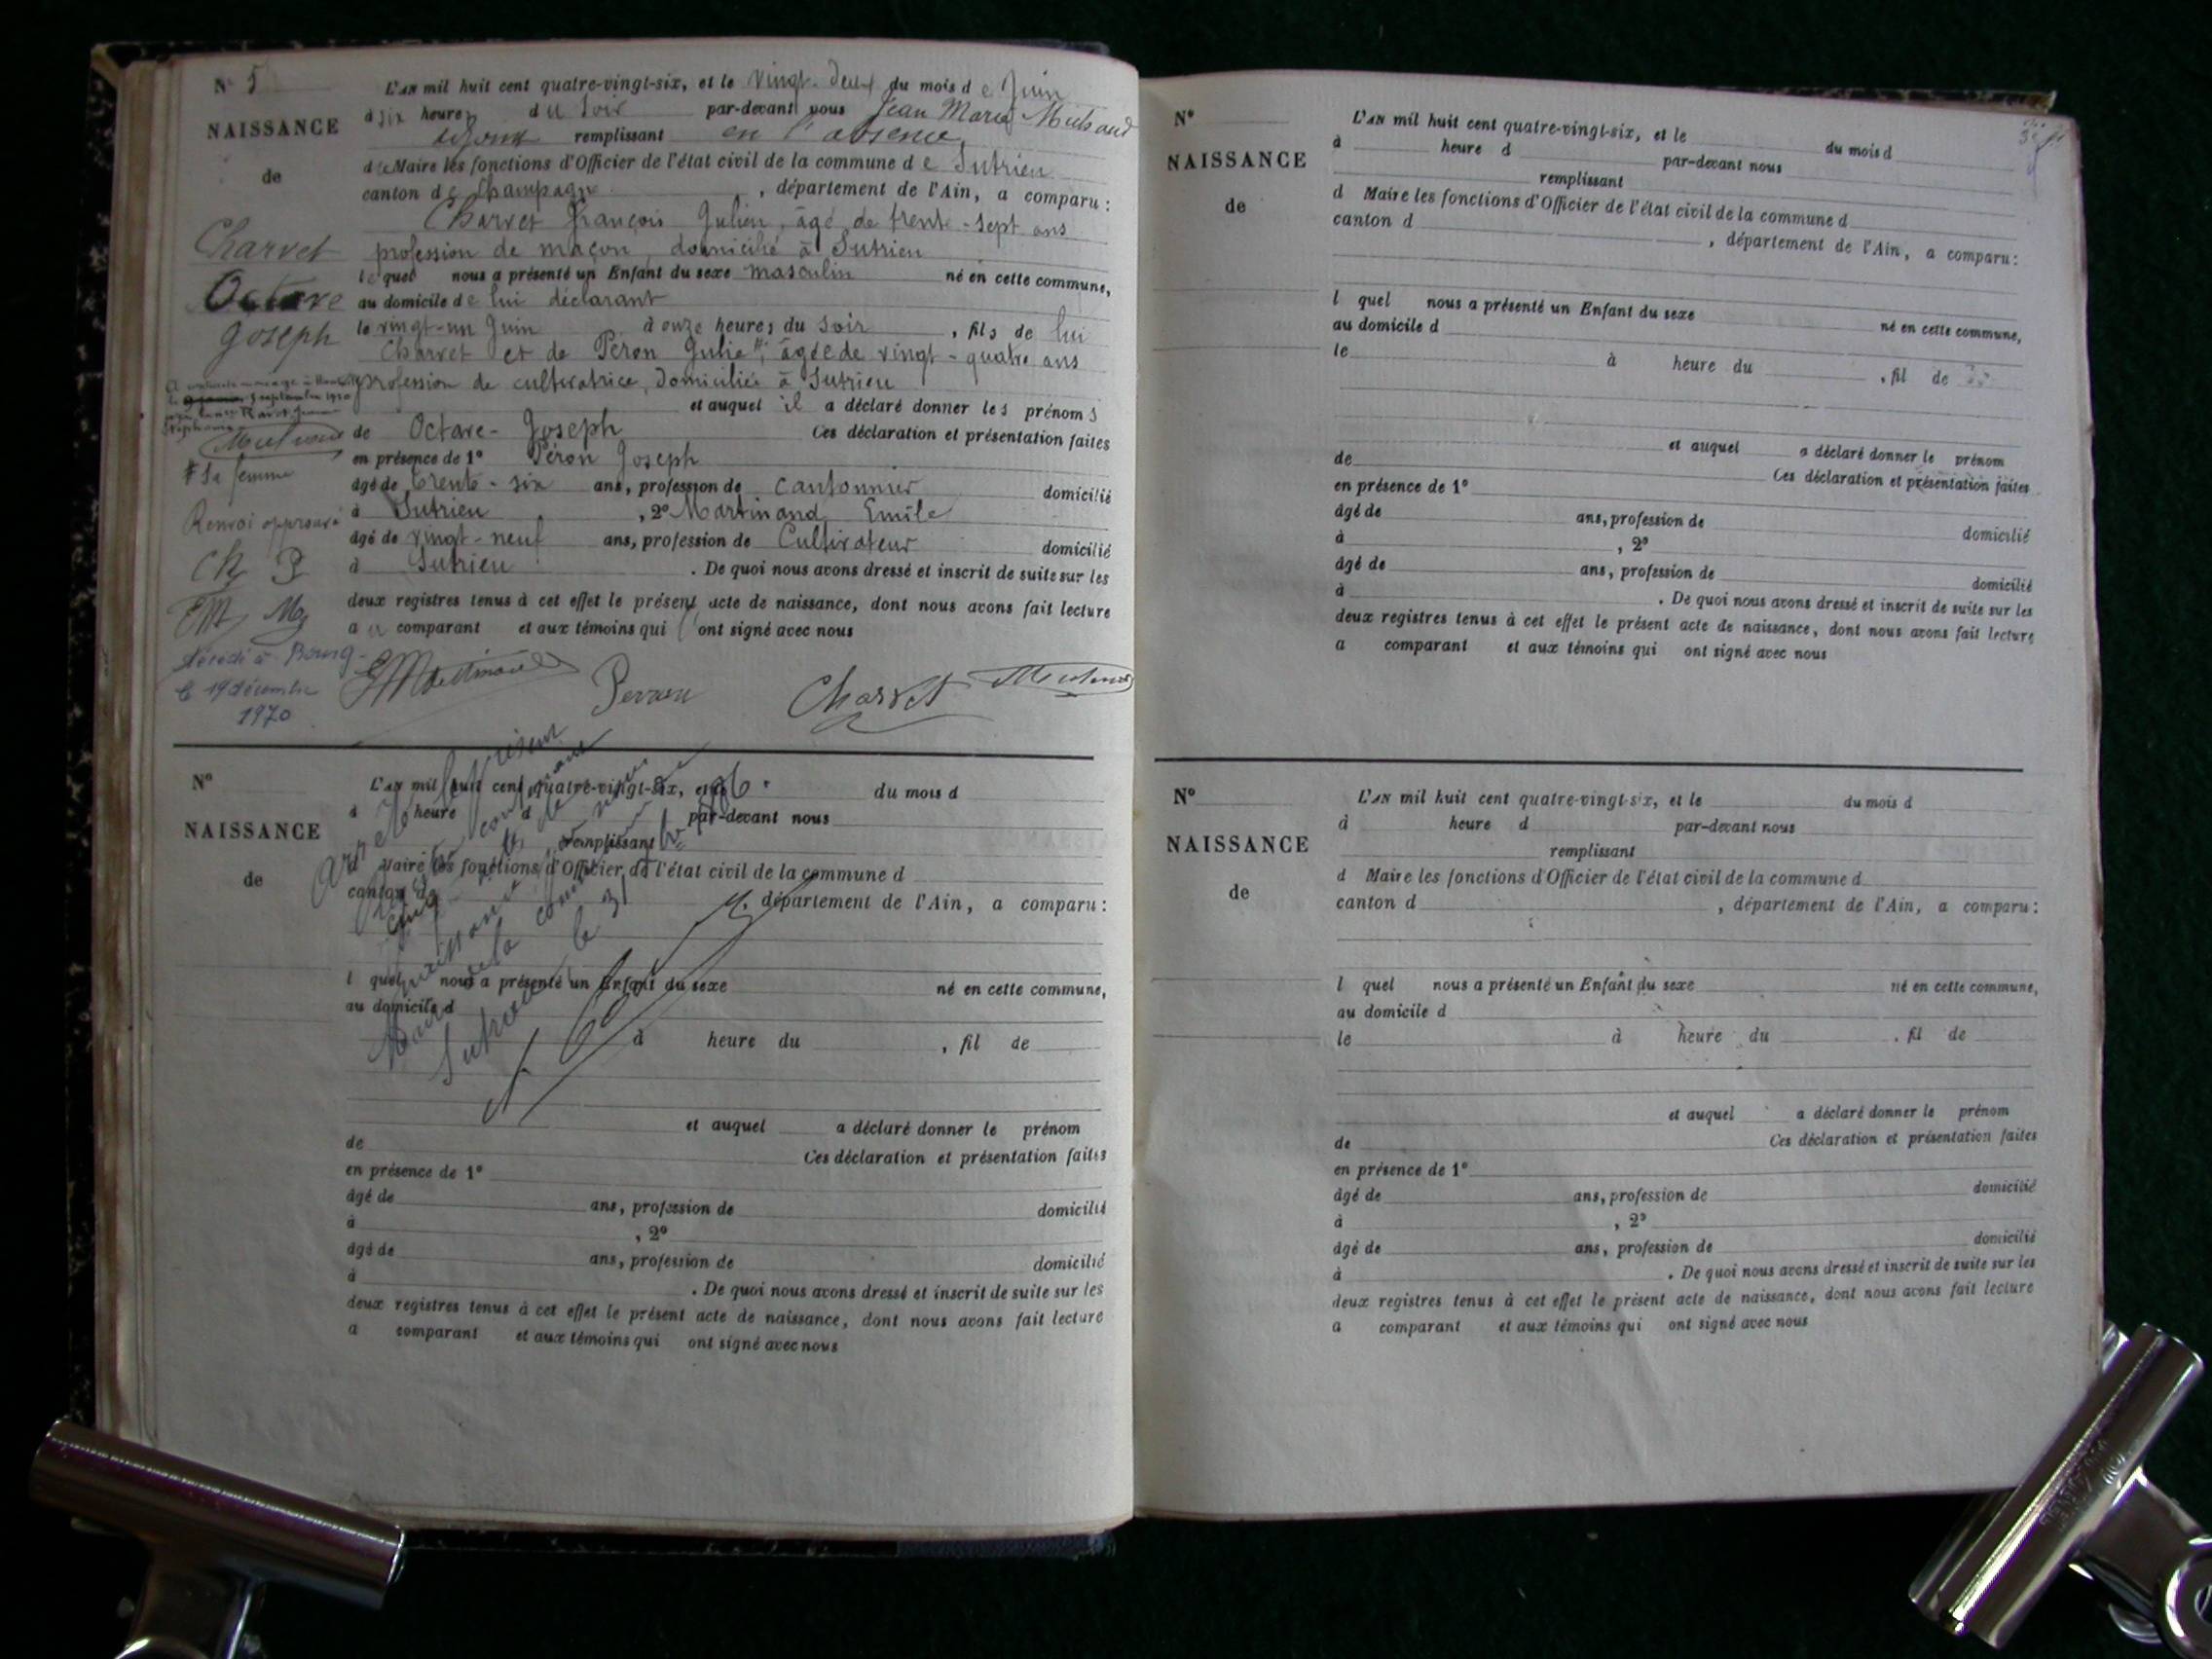 N° 5
NAISSANCE
de
Charvet
Octave
Joseph
5 septembre 1920
# Sa femme
Renvoi approuvé
Ch P
EM M
Décédé à Bourg
le 19 décembre
1970
L'AN mil huit cent quatre-vingt-six, et le vingt-deux du mois de Juin
à six heures du soir par-devant nous Jean Marie Michaud
adjoint remplissant en l'absence
du Maire les fonctions d'Officier de l'état civil de la commune de Sutrieu
canton de Champagne, département de l'Ain, a comparu :
Charvet François Julien, âgé de trente-sept ans
profession de maçon, domicilié à Sutrieu
lequel nous a présenté un Enfant du sexe masculin né en cette commune,
au domicile de lui déclarant
le vingt-un Juin à onze heures du soir, fils de lui
Charvet et de Péron Julie #, âgée de vingt-quatre ans
profession de cultivatrice, domiciliée à Sutrieu
et auquel il a déclaré donner les prénoms
de Octave-Joseph Ces déclaration et présentation faites
en présence de 1° Péron Joseph
âgé de trente-six ans, profession de cantonnier domicilié
à Sutrieu, 2° Martinand Emile
âgé de vingt-neuf ans, profession de Cultivateur domicilié
à Sutrieu. De quoi nous avons dressé et inscrit de suite sur les
deux registres tenus à cet effet le présent acte de naissance, dont nous avons fait lecture
au comparant et aux témoins qui ont signé avec nous
EMartinand Perron Charvet Michaud
N°
NAISSANCE
de
L'AN mil huit cent quatre-vingt-six, et le du mois d
à heure d par-devant nous
remplissant
d Maire les fonctions d'Officier de l'état civil de la commune d
canton d, département de l'Ain, a comparu :
l quel nous a présenté un Enfant du sexe né en cette commune,
au domicile d
à heure du, fil de
et auquel a déclaré donner le prénom
de Ces déclaration et présentation faites
en présence de 1°
âgé de ans, profession de domicilié
à, 2°
âgé de ans, profession de domicilié
à. De quoi nous avons dressé et inscrit de suite sur les
deux registres tenus à cet effet le présent acte de naissance, dont nous avons fait lecture
a comparant et aux témoins qui ont signé avec nous
Arrêté le présent
cinq
Maire de la commune de
Sutrieu le 31
N°
NAISSANCE
de
L'AN mil huit cent quatre-vingt-six, et le du mois d
à heure d par-devant nous
remplissant
d Maire les fonctions d'Officier de l'état civil de la commune d
canton d, département de l'Ain, a comparu :
l quel nous a présenté un Enfant du sexe né en cette commune,
au domicile d
le à heure du, fil de
et auquel a déclaré donner le prénom
de Ces déclaration et présentation faites
en présence de 1°
âgé de ans, profession de domicilié
à, 2°
âgé de ans, profession de domicilié
à. De quoi nous avons dressé et inscrit de suite sur les
deux registres tenus à cet effet le présent acte de naissance, dont nous avons fait lecture
a comparant et aux témoins qui ont signé avec nous
N°
NAISSANCE
de
L'AN mil huit cent quatre-vingt-six, et le du mois d
à heure d par-devant nous
remplissant
d Maire les fonctions d'Officier de l'état civil de la commune d
canton d, département de l'Ain, a comparu :
l quel nous a présenté un Enfant du sexe né en cette commune,
au domicile d
le à heure du, fil de
et auquel a déclaré donner le prénom
de Ces déclaration et présentation faites
en présence de 1°
âgé de ans, profession de domicilié
à, 2°
âgé de ans, profession de domicilié
à. De quoi nous avons dressé et inscrit de suite sur les
deux registres tenus à cet effet le présent acte de naissance, dont nous avons fait lecture
a comparant et aux témoins qui ont signé avec nous